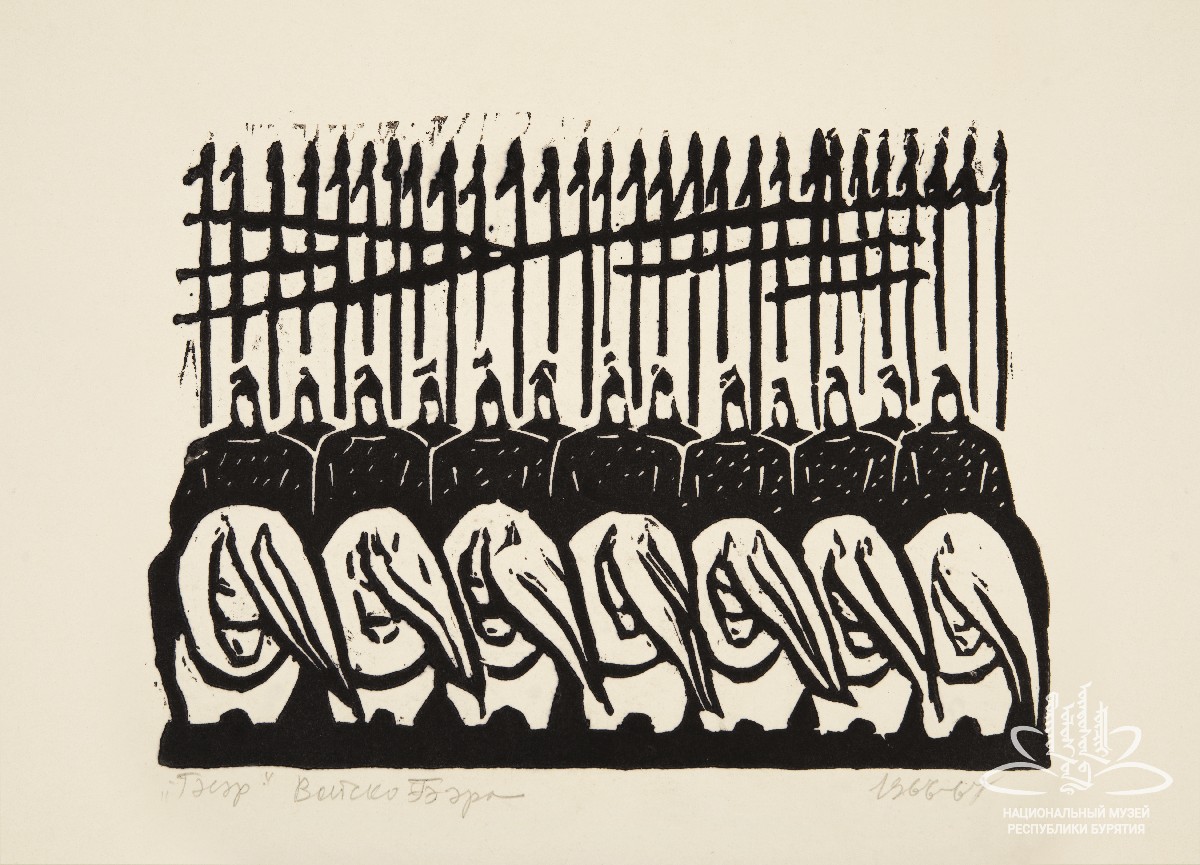 „Гэсэр" Войско Гэсэра 1966-67
НАЦИОНАЛЬНЫЙ МУЗЕЙ
РЕСПУБЛИКИ БУРЯТИЯ